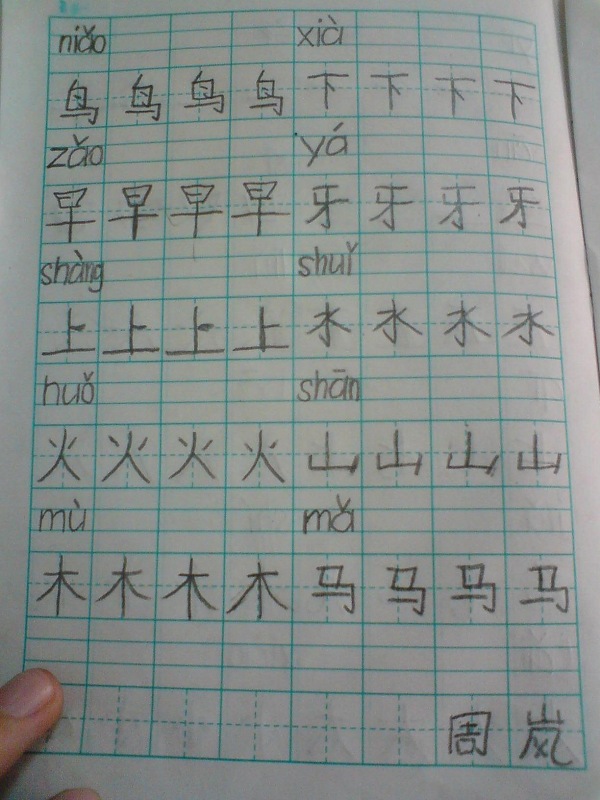 niǎo xià
鸟 鸟 鸟 鸟 下 下 下 下
zǎo yá
早 早 早 早 牙 牙 牙 牙
shàng shuǐ
上 上 上 上 水 水 水 水
huǒ shān
火 火 火 火 山 山 山 山
mù mǎ
木 木 木 木 马 马 马 马
周 岚